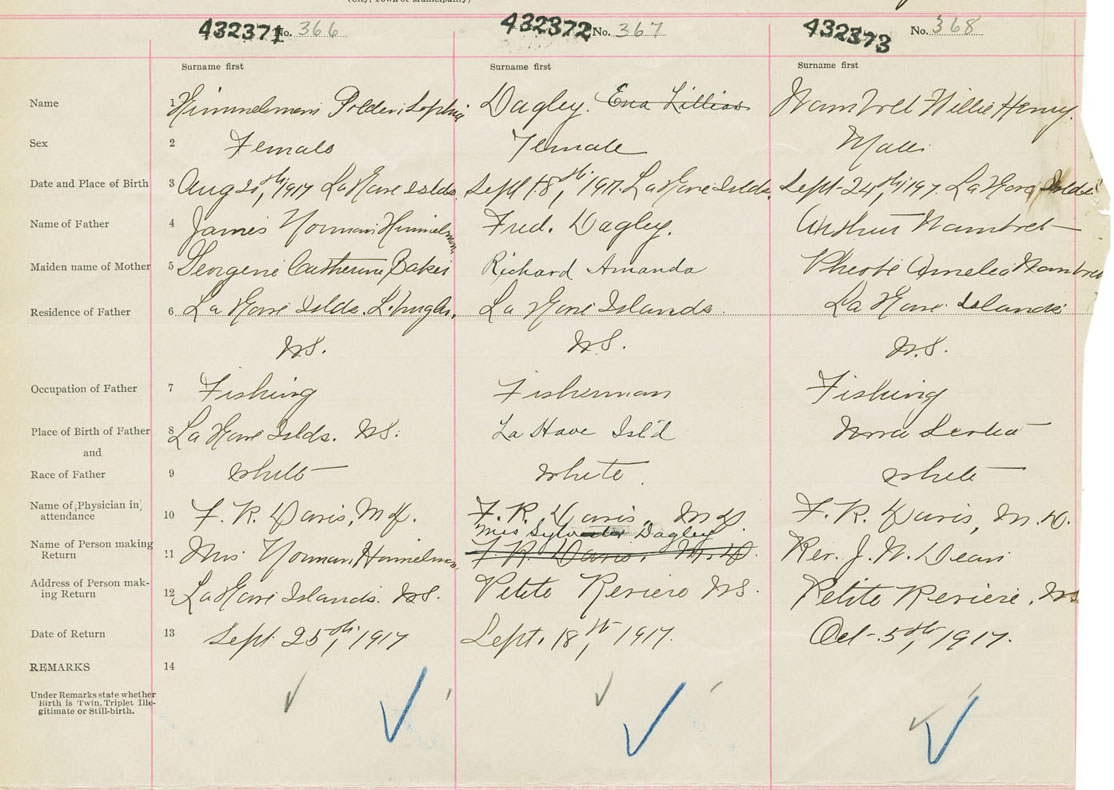 (City, Town or Municipality)
432371 No. 366 432372 No. 367 432373 No. 368
Surname first Surname first Surname first
Name 1 Himmelman Sophia Dagley. Ena Lillias Wambolt Willie Henry.
Sex 2 Female Female Male
Date and Place of Birth 3 Aug 20th, 1917 LaHave Islds. Sept 18th, 1917. LaHave Islds. Sept. 24th, 1917. LaHave Islds
Name of Father 4 James Norman Himmelman Fred. Dagley. Arthur Wambolt
Maiden name of Mother 5 Georgenie Catherine Baker Richard Amanda Pheobe Amelia Wambolt
Residence of Father 6 La Have Islds. La Have Islands. La Have Islands
N.S. N.S. N.S.
Occupation of Father 7 Fishing Fisherman Fishing
Place of Birth of Father 8 La Have Islds. N.S. La Have Isl'd Nova Scotia
and
Race of Father 9 White White. White
Name of Physician in attendance 10 F. R. Davis, M.D. F. R. Davis, M.D. F. R. Davis, M.D.
Mrs Sylvester Dagley
Name of Person making Return 11 Mrs Norman Himmelman. F. R. Davis. M.D. Rev. J. W. Dean
Address of Person making Return 12 LaHave Islands. N.S. Petite Reviere N.S. Petite Reviere. N.S.
Date of Return 13 Sept. 25th, 1917 Sept. 18th, 1917. Oct. 5th, 1917.
REMARKS 14
Under Remarks state whether
Birth is Twin, Triplet Ille-
gitimate or Still-birth.